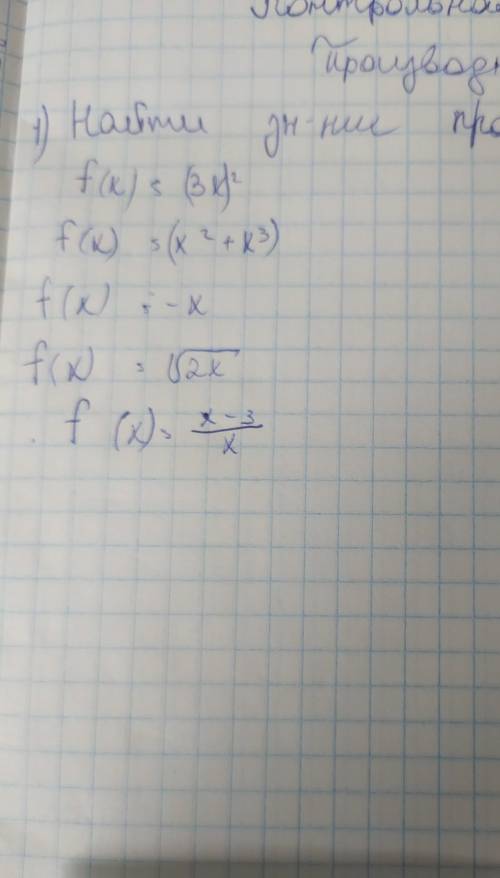 Контрольная
Производн
1) Найти зн-ние про
f(x) = (3x)²
f(x) = (x² + x³)
f(x) = -x
f(x) = √2x
f(x) = x-3/x